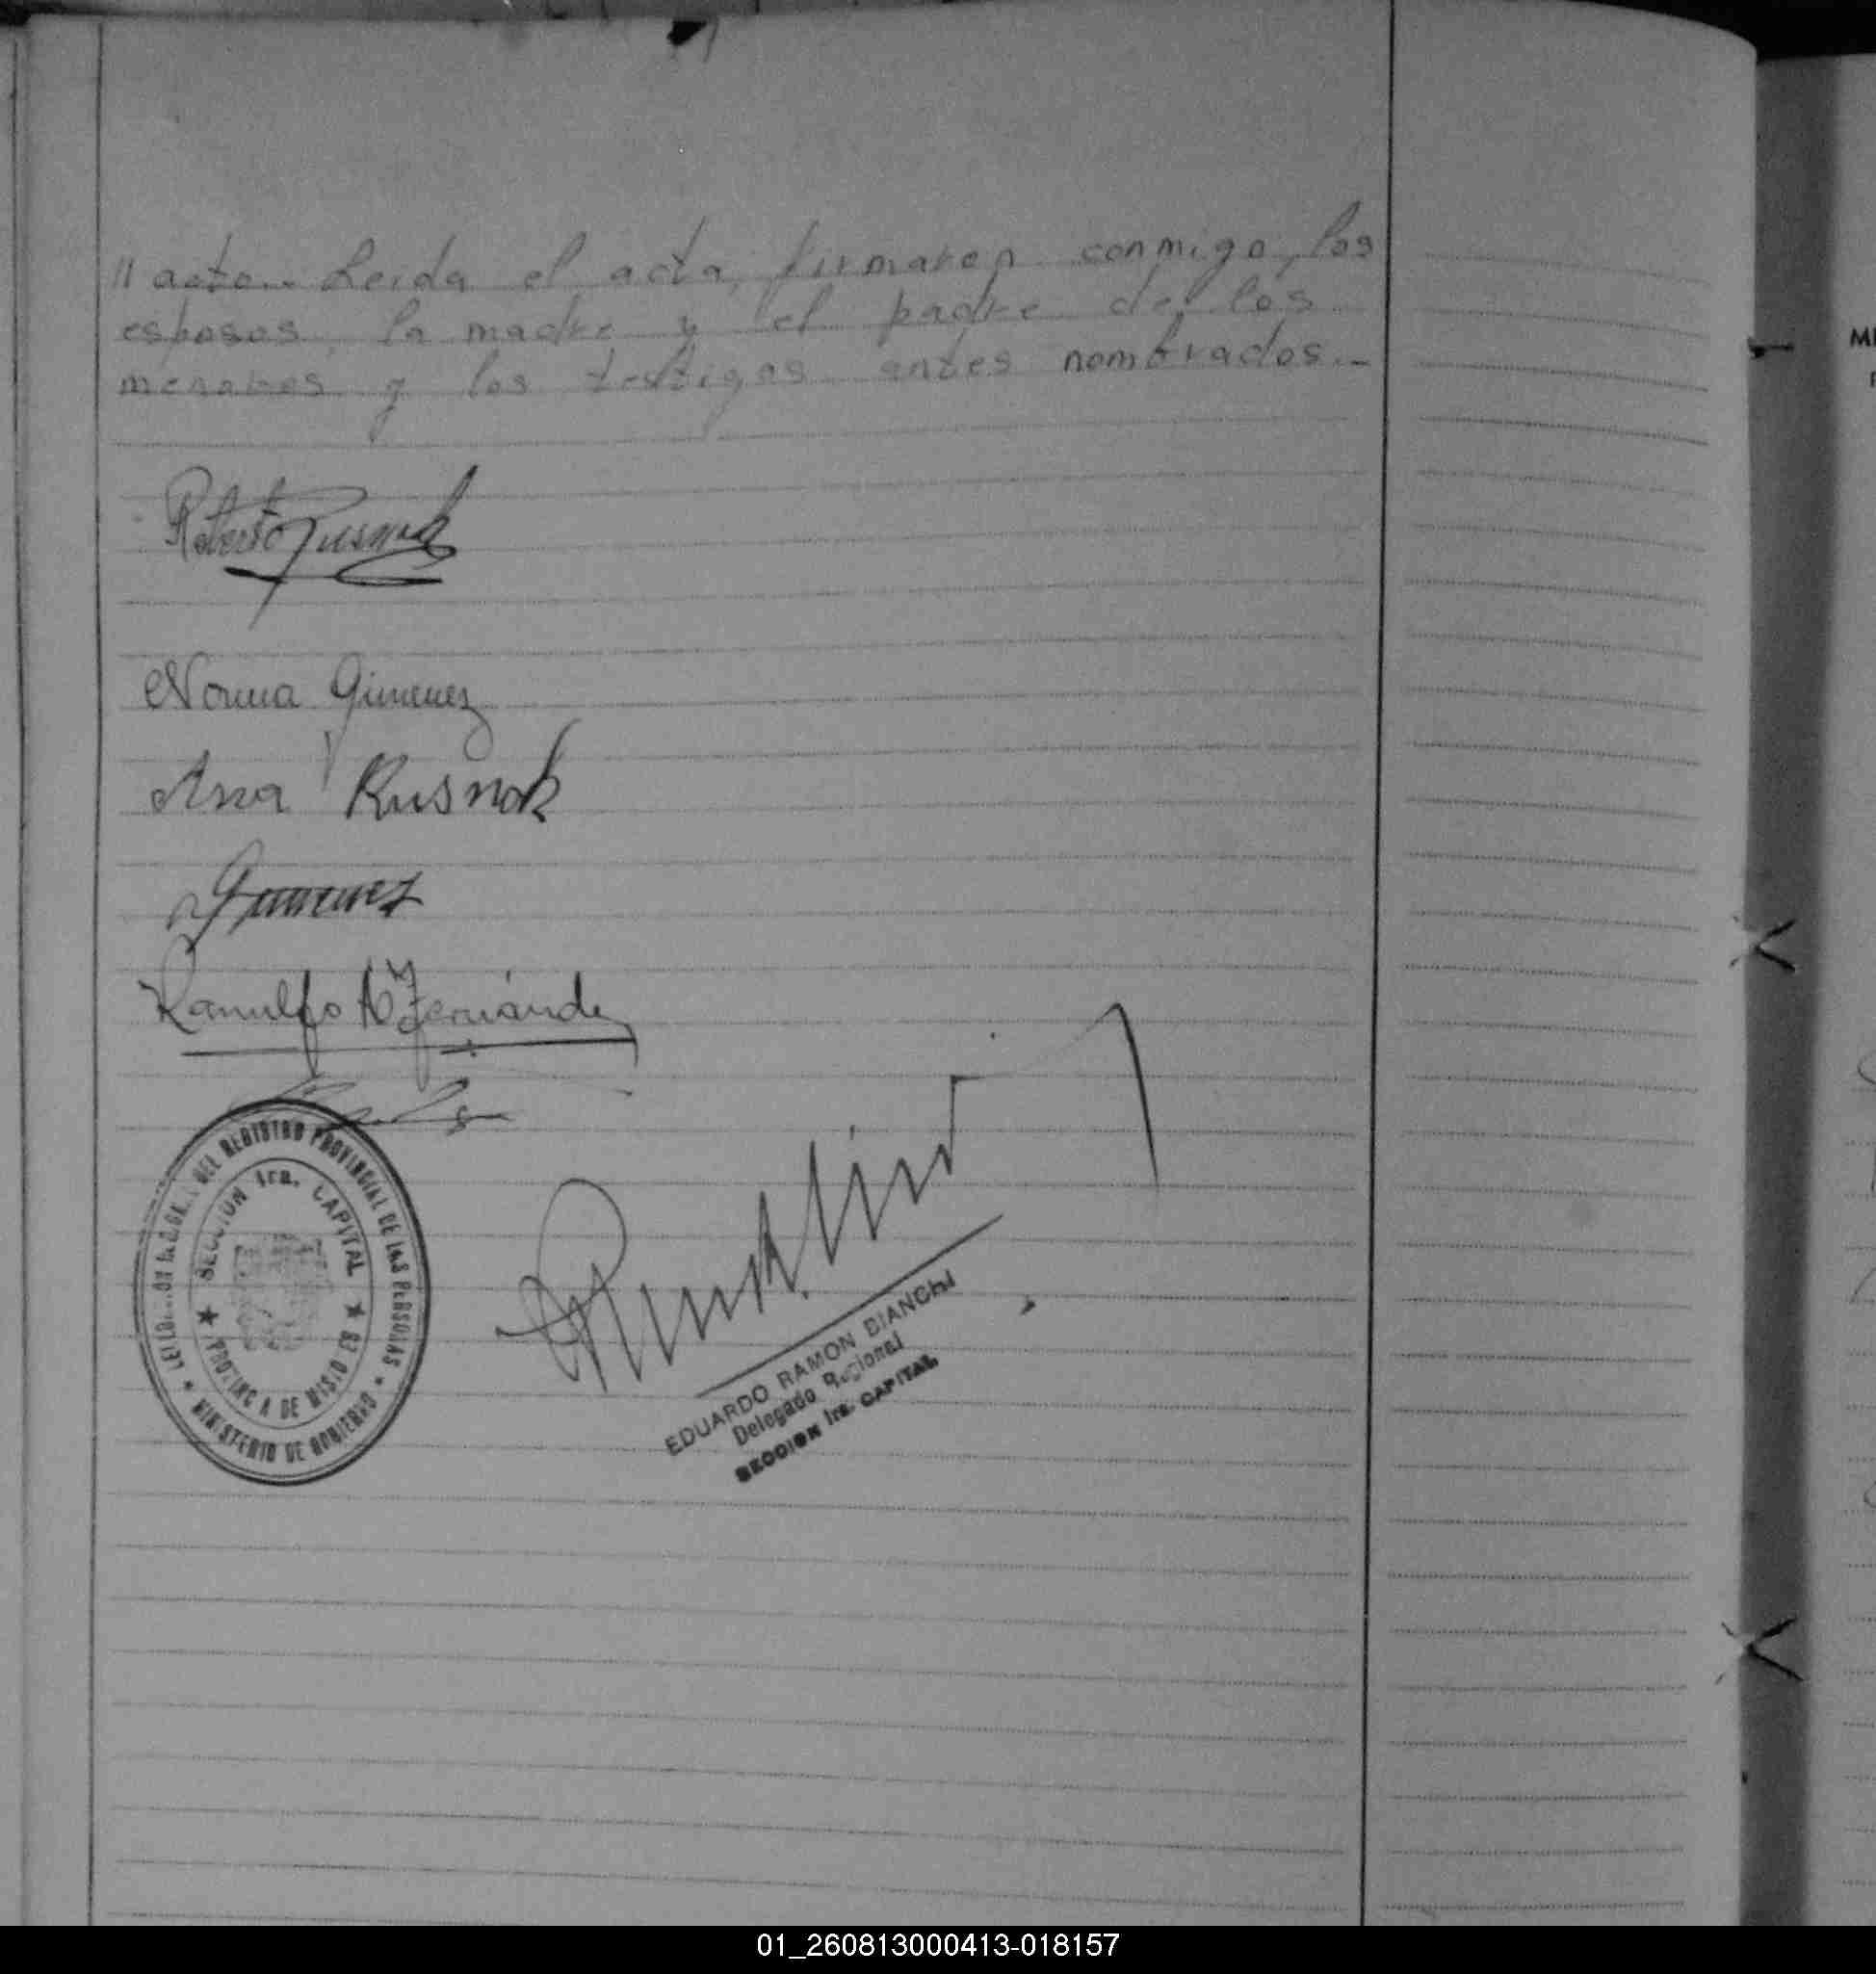 // acto.. Leida el acta, firmaron conmigo, los
esposos, la madre y el padre de los
menores y los testigos antes nombrados.-
Roberto Rusnak
Norma Gimenez
Ana Rusnak
Gimenez
Ranulfo A Fernández
DEL REGISTRO PROVINCIAL DE LAS PERSONAS
SECCION 1ra. CAPITAL
PROVINC A DE MISIO ES
MINISTERIO DE GOBIERNO
EDUARDO RAMON BIANCHI
Delegado Regional
SECCION 1ra. CAPITAL
01_260813000413-018157